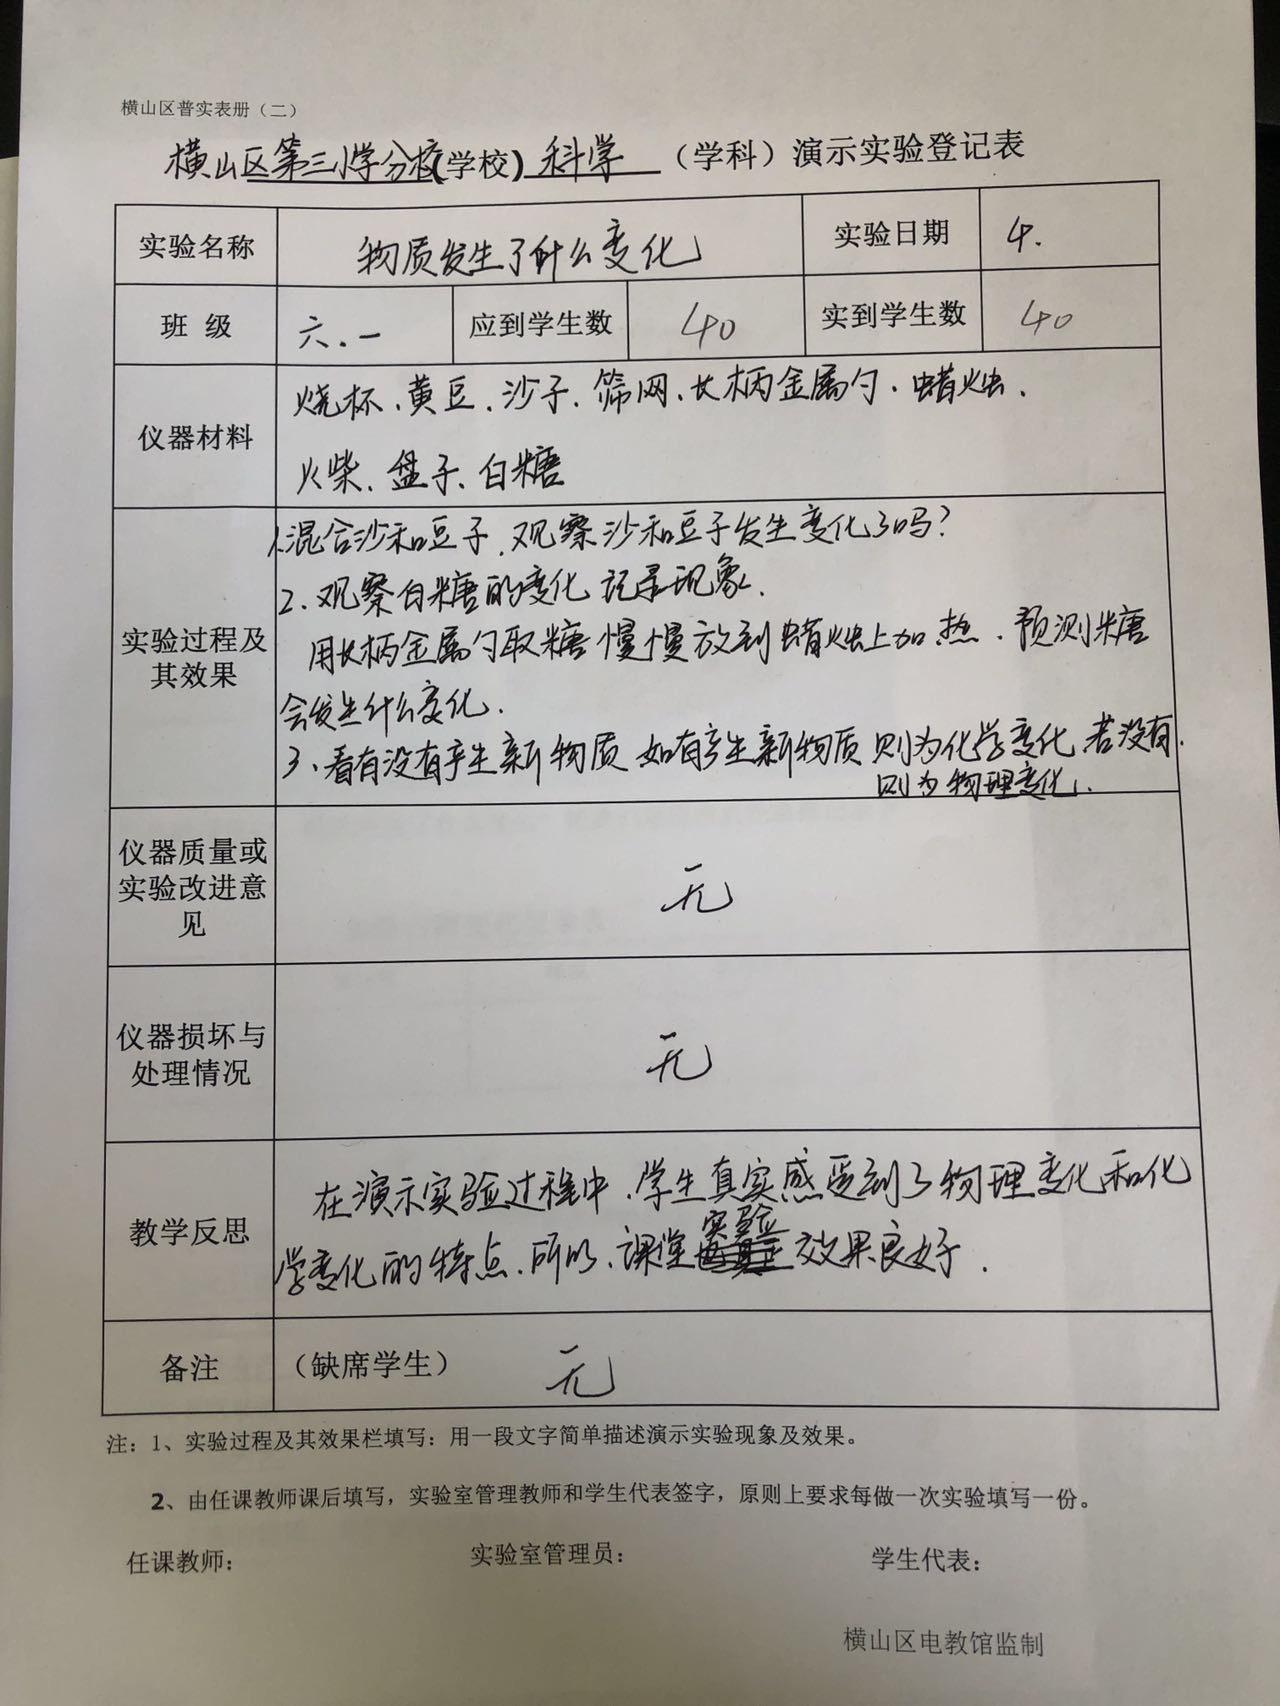 横山区普实表册（二）
横山区第三小学分校(学校) 科学 （学科）演示实验登记表
实验名称 物质发生了什么变化 实验日期 4.
班 级 六.一 应到学生数 40 实到学生数 40
烧杯、黄豆、沙子、筛网、长柄金属勺、蜡烛、
仪器材料
火柴、盘子、白糖
1.混合沙和豆子,观察沙和豆子发生变化了吗?
2.观察白糖的变化 记录现象.
实验过程及
其效果
用长柄金属勺取糖慢慢放到蜡烛上加热.预测糖
会发生什么变化.
3、看有没有产生新物质 如有产生新物质 则为化学变化 若没有.
则为物理变化.
仪器质量或
实验改进意
见
无
仪器损坏与
处理情况
无
教学反思
在演示实验过程中,学生真实感受到了物理变化和化
学变化的特点.所以,课堂实验效果良好.
备注 （缺席学生） 无
注：1、实验过程及其效果栏填写：用一段文字简单描述演示实验现象及效果。
2、由任课教师课后填写，实验室管理教师和学生代表签字，原则上要求每做一次实验填写一份。
任课教师： 实验室管理员： 学生代表：
横山区电教馆监制